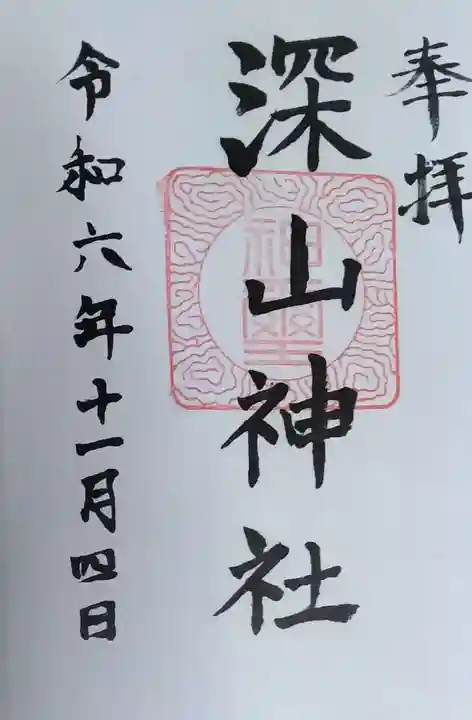 奉拝
深山神社
令和六年十一月四日